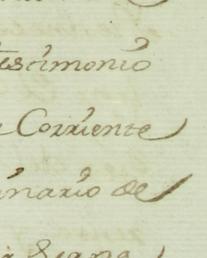 testimonio
Corriente
inario de